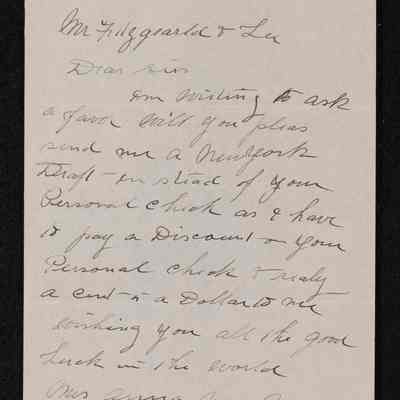 Mr Fitzgearld & Lee
Dear sirs
am writing to ask
a favor will you pleas
send me a Newyork
Draft in stead of your
Personal Check as I have
to pay a Discount on your
Personal Check & realy
a cent is a Dollar to me
wishing you all the good
luck in the world
Mrs